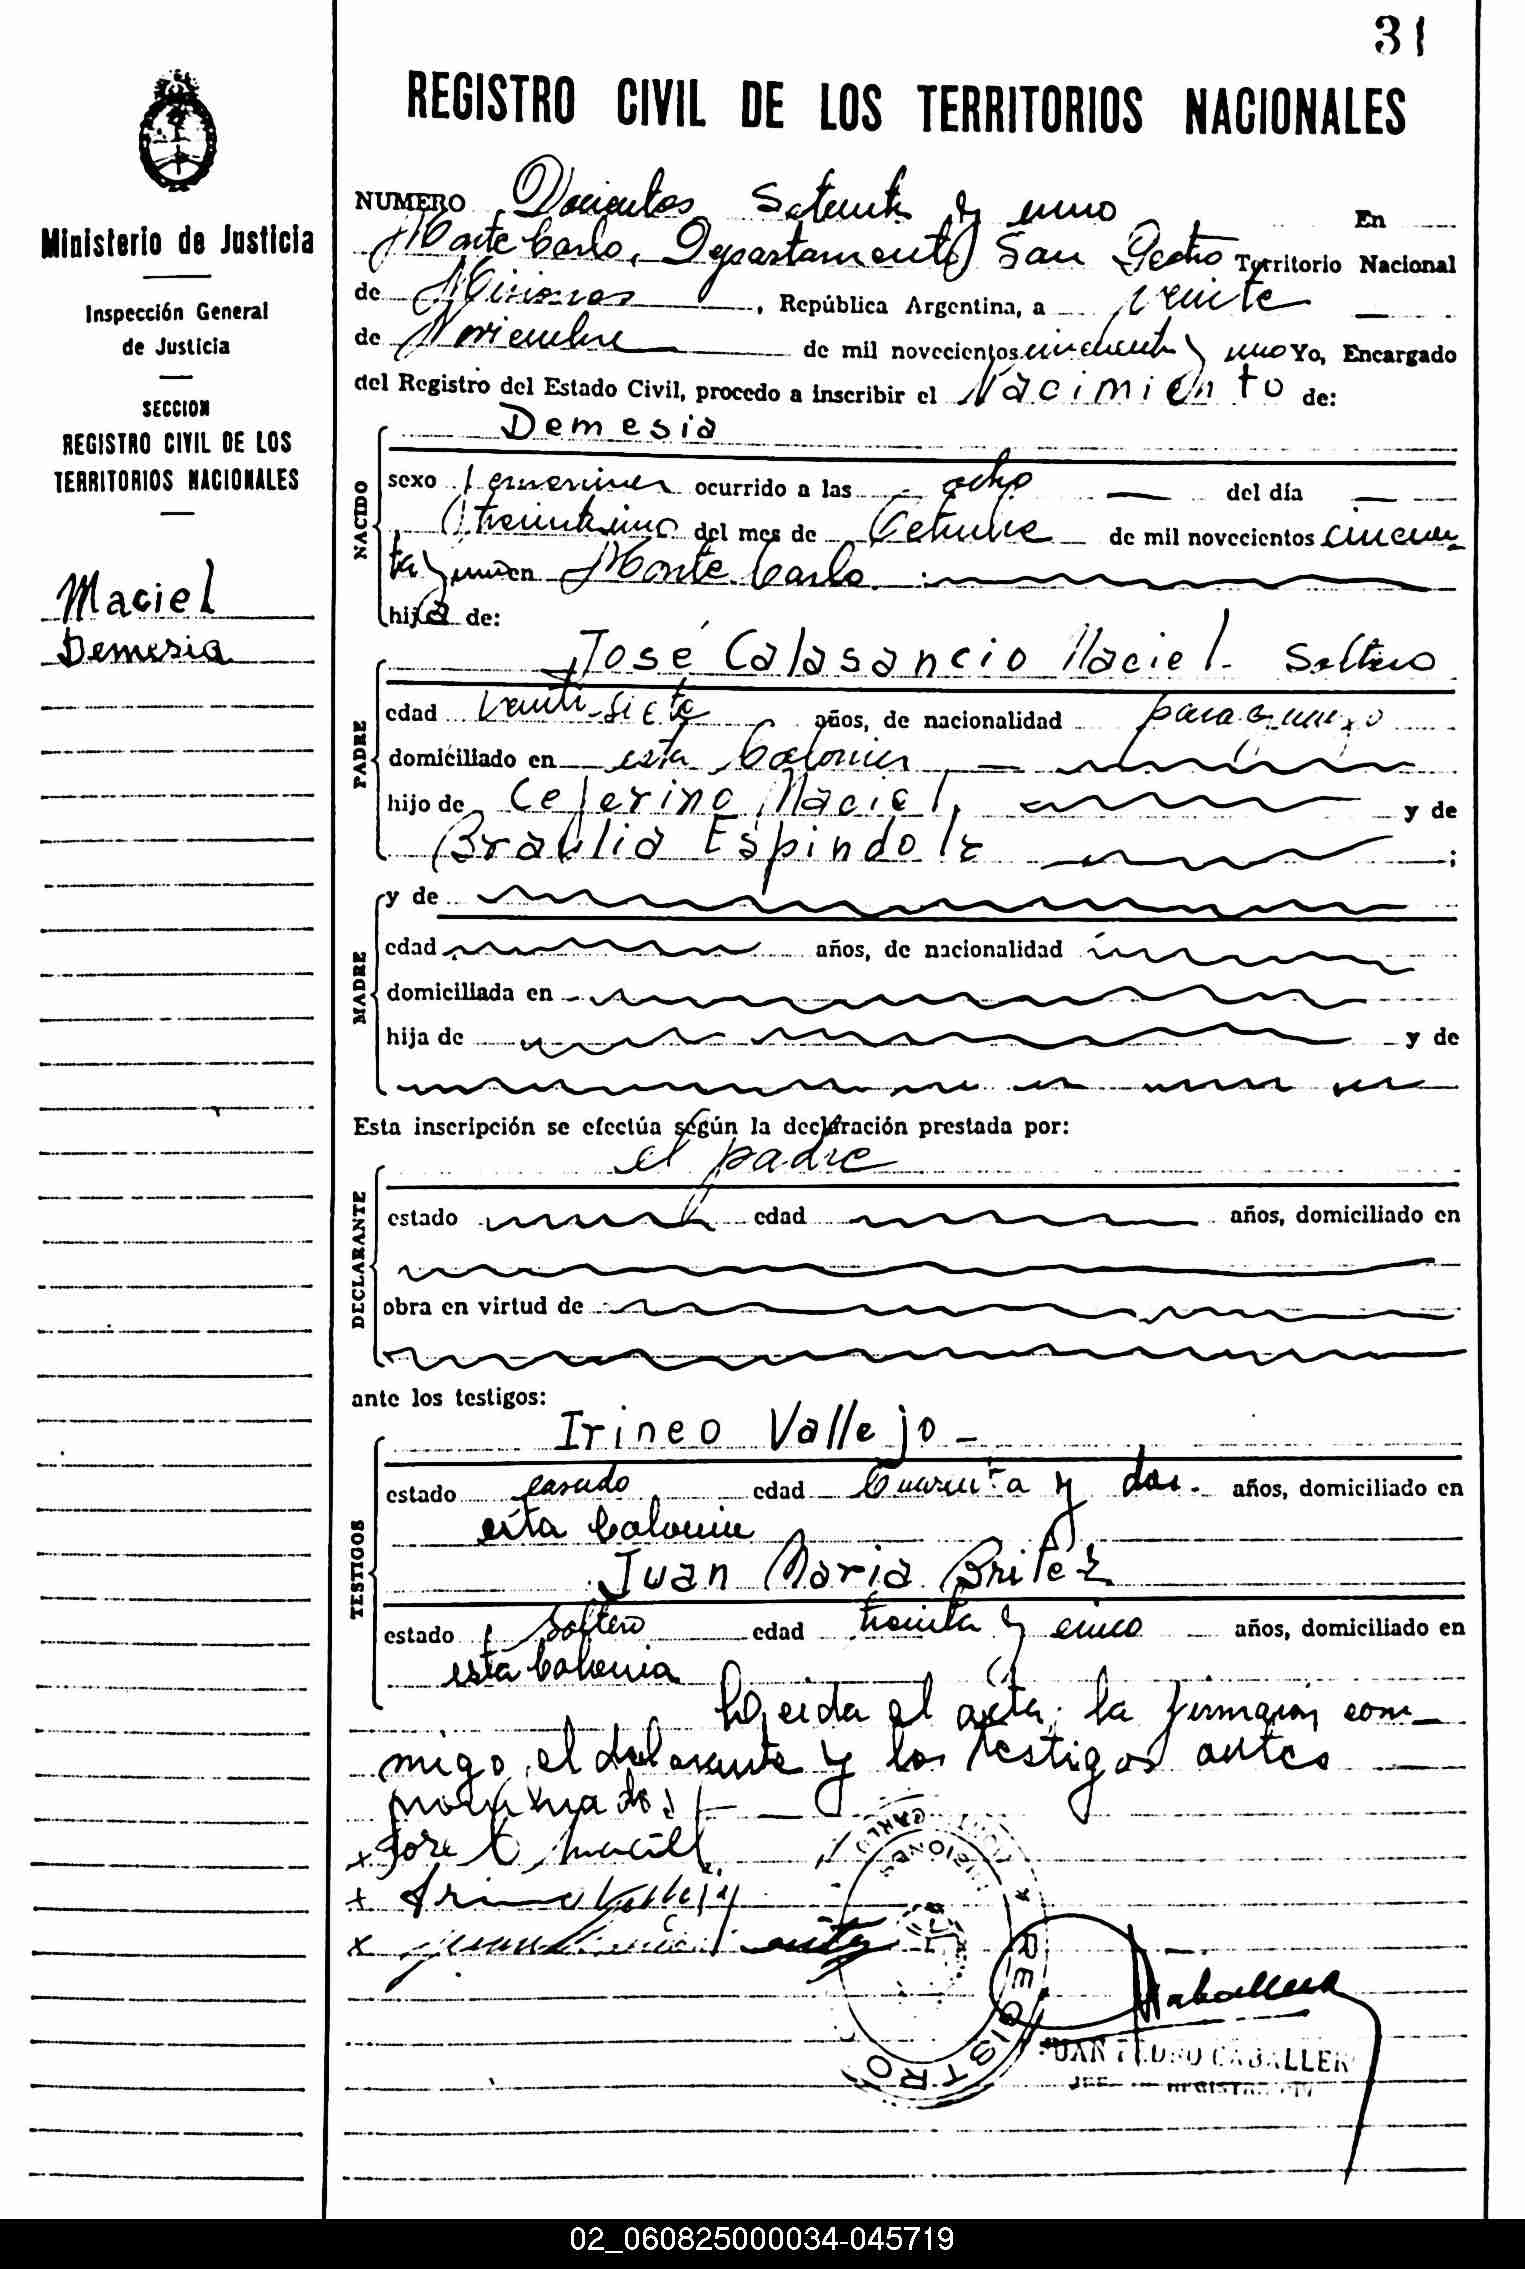 31
REGISTRO CIVIL DE LOS TERRITORIOS NACIONALES
Ministerio de Justicia
Inspección General
de Justicia
SECCION
REGISTRO CIVIL DE LOS
TERRITORIOS NACIONALES
Maciel
Demesia
NUMERO Docientos Setenta y uno En
Monte Carlo, Departamento San Pedro Territorio Nacional
de Misiones, República Argentina, a veinte
de Noviembre de mil novecientos cincuenta y uno Yo, Encargado
del Registro del Estado Civil, procedo a inscribir el Nacimiento de:
NACIDO
Demesia
sexo femenino ocurrido a las ocho del día
treintiuno del mes de Octubre de mil novecientos cincuen
ta y uno en Monte Carlo
hija de:
PADRE
José Calasancio Maciel - Soltero
edad Veinti-siete años, de nacionalidad paraguayo
domiciliado en esta Colonia
hijo de Ceferino Maciel, y de
Braulia Espindola ;
MADRE
y de
edad años, de nacionalidad
domiciliada en
hija de y de
Esta inscripción se efectúa según la declaración prestada por:
DECLARANTE
el padre
estado edad años, domiciliado en
obra en virtud de
ante los testigos:
TESTIGOS
Irineo Vallejo -
estado casado edad Cuarenta y dos. años, domiciliado en
esta Colonia
Juan Maria Britez
estado Soltero edad treinta y cinco años, domiciliado en
esta Colonia
Leida el acta, la firmaron con-
migo, el declarante y los testigos antes
nombrados
x Jose C Maciel
x Irineo Vallejo
x Juan Maria Britez
MONTE CARLO
MISIONES
REGISTRO
Caballero
JUAN PEDRO CABALLERO
02_060825000034-045719